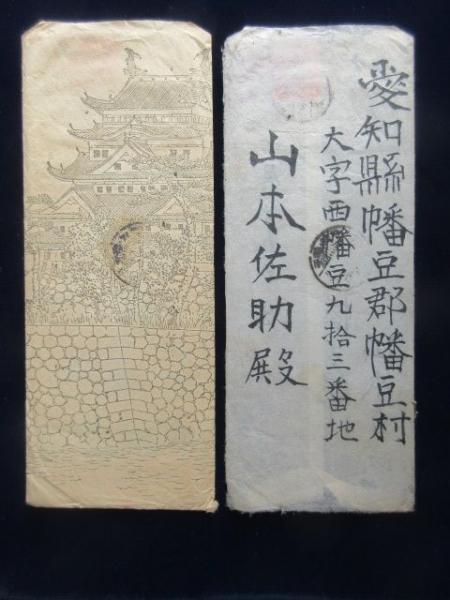 愛知縣幡豆郡幡豆村
大字西幡豆九拾三番地
山本佐助殿